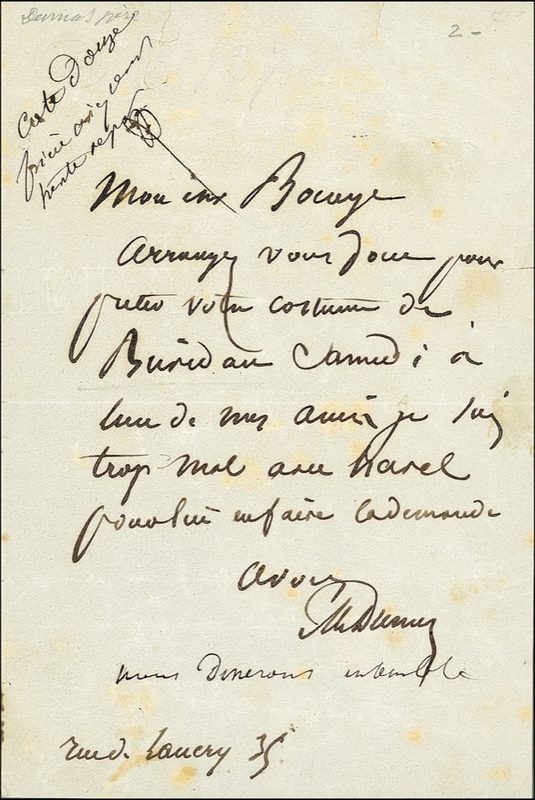 Dumas père
2 -
Mon cher Bocage
arrangez vous donc pour
preter votre costume de
Buridan Samedi à
l'un de mes amis je suis
trop mal avec harel
pour lui en faire la demande
a vous
Alex Dumas
nous dinerons ensemble
rue de Lancry 35